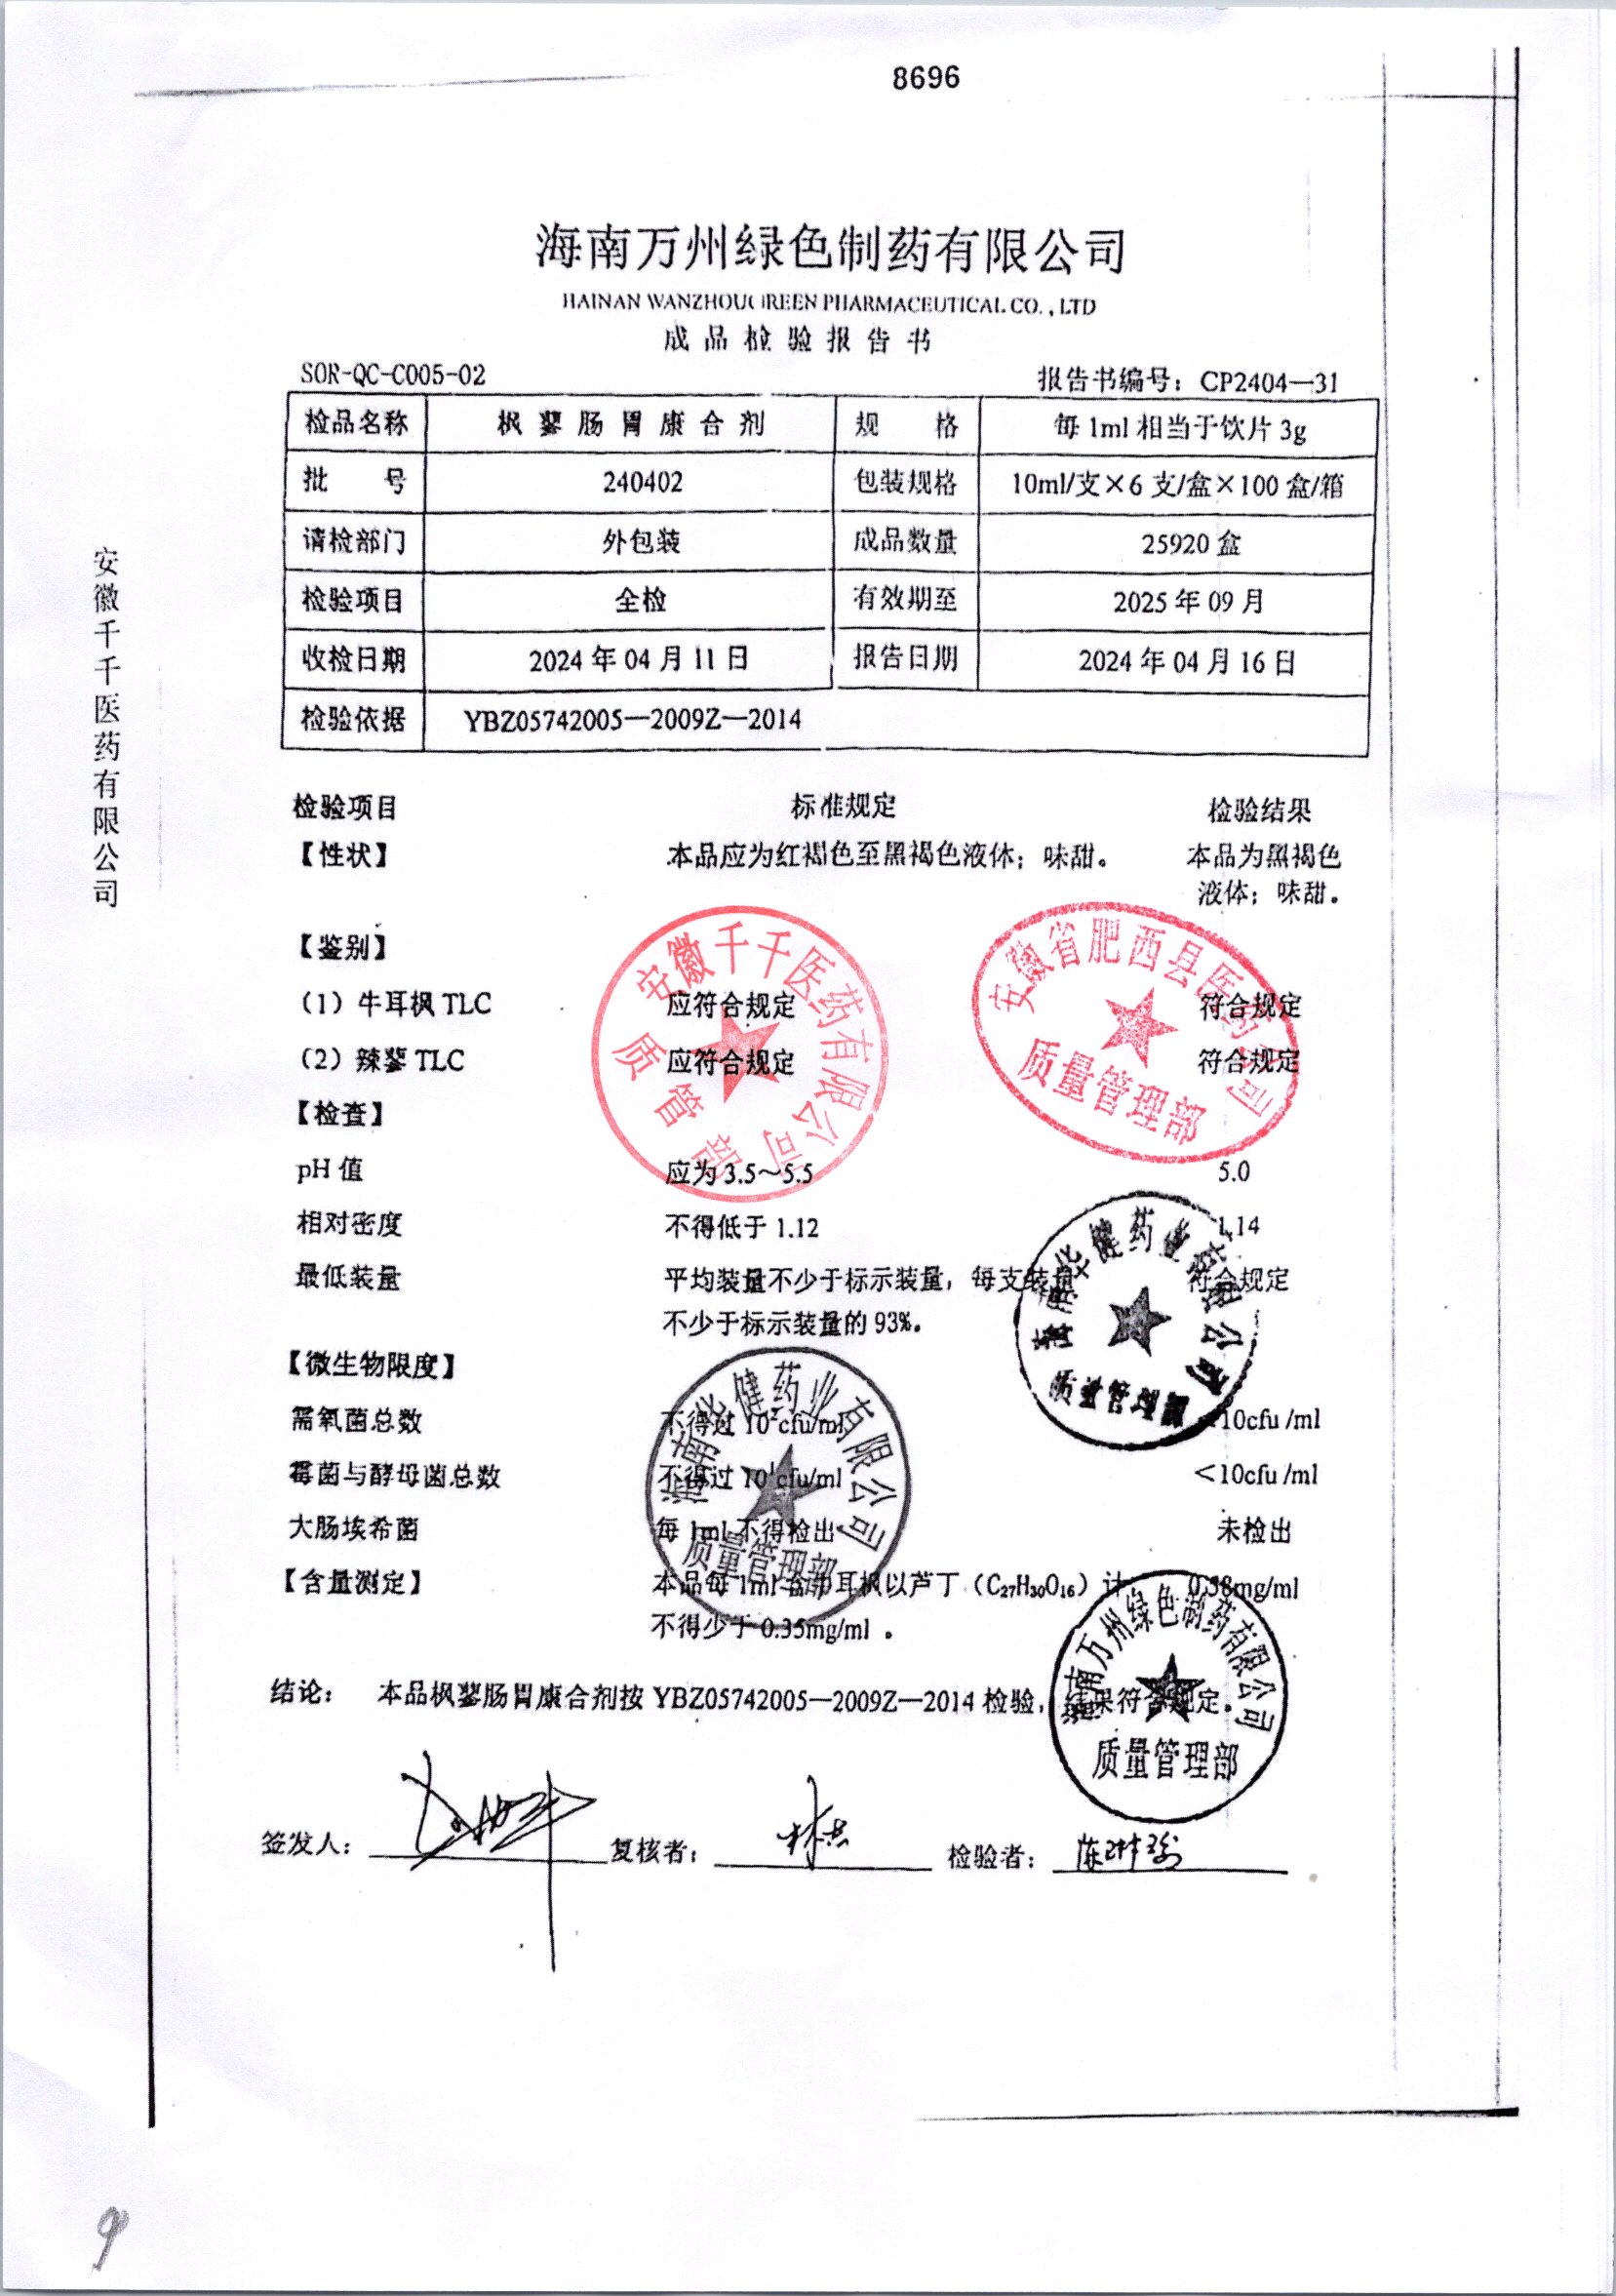 8696
海南万州绿色制药有限公司
HAINAN WANZHOU GREEN PHARMACEUTICAL CO., LTD
成品检验报告书
SOR-QC-C005-02 报告书编号：CP2404—31
检品名称 枫蓼肠胃康合剂 规 格 每 1ml 相当于饮片 3g
批 号 240402 包装规格 10ml/支×6 支/盒×100 盒/箱
请检部门 外包装 成品数量 25920 盒
检验项目 全检 有效期至 2025 年 09 月
收检日期 2024 年 04 月 11 日 报告日期 2024 年 04 月 16 日
检验依据 YBZ05742005—2009Z—2014
安徽千千医药有限公司
检验项目 标准规定 检验结果
【性状】 本品应为红褐色至黑褐色液体；味甜。 本品为黑褐色
液体；味甜。
【鉴别】
（1）牛耳枫 TLC 应符合规定 符合规定
（2）辣蓼 TLC 应符合规定 符合规定
【检查】
pH 值 应为 3.5～5.5 5.0
相对密度 不得低于 1.12 1.14
最低装量 平均装量不少于标示装量，每支装量 符合规定
不少于标示装量的 93%。
【微生物限度】
需氧菌总数 不得过 10²cfu/ml <10cfu /ml
霉菌与酵母菌总数 不得过 10¹cfu/ml <10cfu /ml
大肠埃希菌 每 1ml 不得检出 未检出
【含量测定】 本品每 1ml 含牛耳枫以芦丁（C₂₇H₃₀O₁₆）计 0.58mg/ml
不得少于 0.35mg/ml 。
结论： 本品枫蓼肠胃康合剂按 YBZ05742005—2009Z—2014 检验，结果符合规定。
签发人： 复核者： 检验者：
安徽千千医药有限公司
质管部
安徽省肥西县医药公司
质量管理部
海南华健药业有限公司
质量管理部
海南华健药业有限公司
质量管理部
海南万州绿色制药有限公司
质量管理部